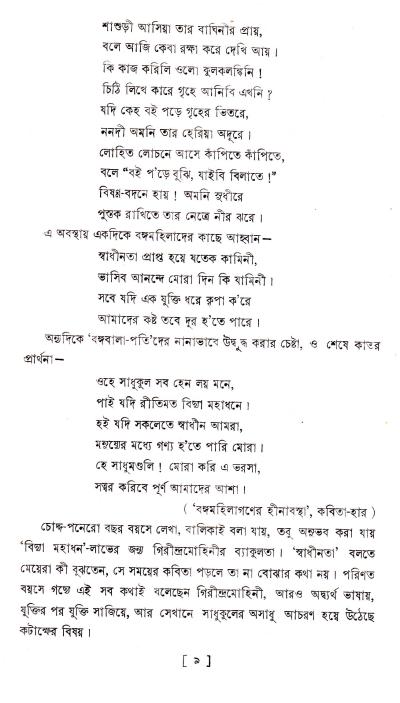 শাশুড়ী আসিয়া তার বাঘিনীর প্রায়,
বলে আজি কেবা রক্ষা করে দেখি আয়।
কি কাজ করিলি ওলো কুলকলঙ্কিনি!
চিঠি লিখে কারে গৃহে আনিবি এখনি?
যদি কেহ বই পড়ে গৃহের ভিতরে,
ননদী অমনি তার হেরিয়া অদূরে।
লোহিত লোচনে আসে কাঁপিতে কাঁপিতে,
বলে “বই প'ড়ে বুঝি, যাইবি বিলাতে!”
বিষণ্ণ-বদনে হায়! অমনি সুধীরে
পুস্তক রাখিতে তার নেত্রে নীর ঝরে।
এ অবস্থায় একদিকে বঙ্গমহিলাদের কাছে আহ্বান—
স্বাধীনতা প্রাপ্ত হয়ে যতেক কামিনী,
ভাসিব আনন্দে মোরা দিন কি যামিনী।
সবে যদি এক যুক্তি ধরে কৃপা ক'রে
আমাদের কষ্ট তবে দূর হ'তে পারে।
অন্যদিকে ‘বঙ্গবালা-পতি’দের নানাভাবে উদ্বুদ্ধ করার চেষ্টা, ও শেষে কাতর
প্রার্থনা—
ওহে সাধুকুল সব হেন লয় মনে,
পাই যদি রীতিমত বিদ্যা মহাধনে।
হই যদি সকলেতে স্বাধীন আমরা,
মনুষ্যের মধ্যে গণ্য হ'তে পারি মোরা।
হে সাধুমণ্ডলি! মোরা করি এ ভরসা,
সত্বর করিবে পূর্ণ আমাদের আশা।
( ‘বঙ্গমহিলাগণের হীনাবস্থা’, কবিতা-হার )
চোদ্দ-পনেরো বছর বয়সে লেখা, বালিকাই বলা যায়, তবু অনুভব করা যায়
‘বিদ্যা মহাধন’-লাভের জন্য গিরীন্দ্রমোহিনীর ব্যাকুলতা। ‘স্বাধীনতা’ বলতে
মেয়েরা কী বুঝতেন, সে সময়ের কবিতা পড়লে তা না বোঝার কথা নয়। পরিণত
বয়সে গদ্যে এই সব কথাই বলেছেন গিরীন্দ্রমোহিনী, আরও অব্যর্থ ভাষায়,
যুক্তির পর যুক্তি সাজিয়ে, আর সেখানে সাধুকুলের অসাধু আচরণ হয়ে উঠেছে
কটাক্ষের বিষয়।
[ ৯ ]